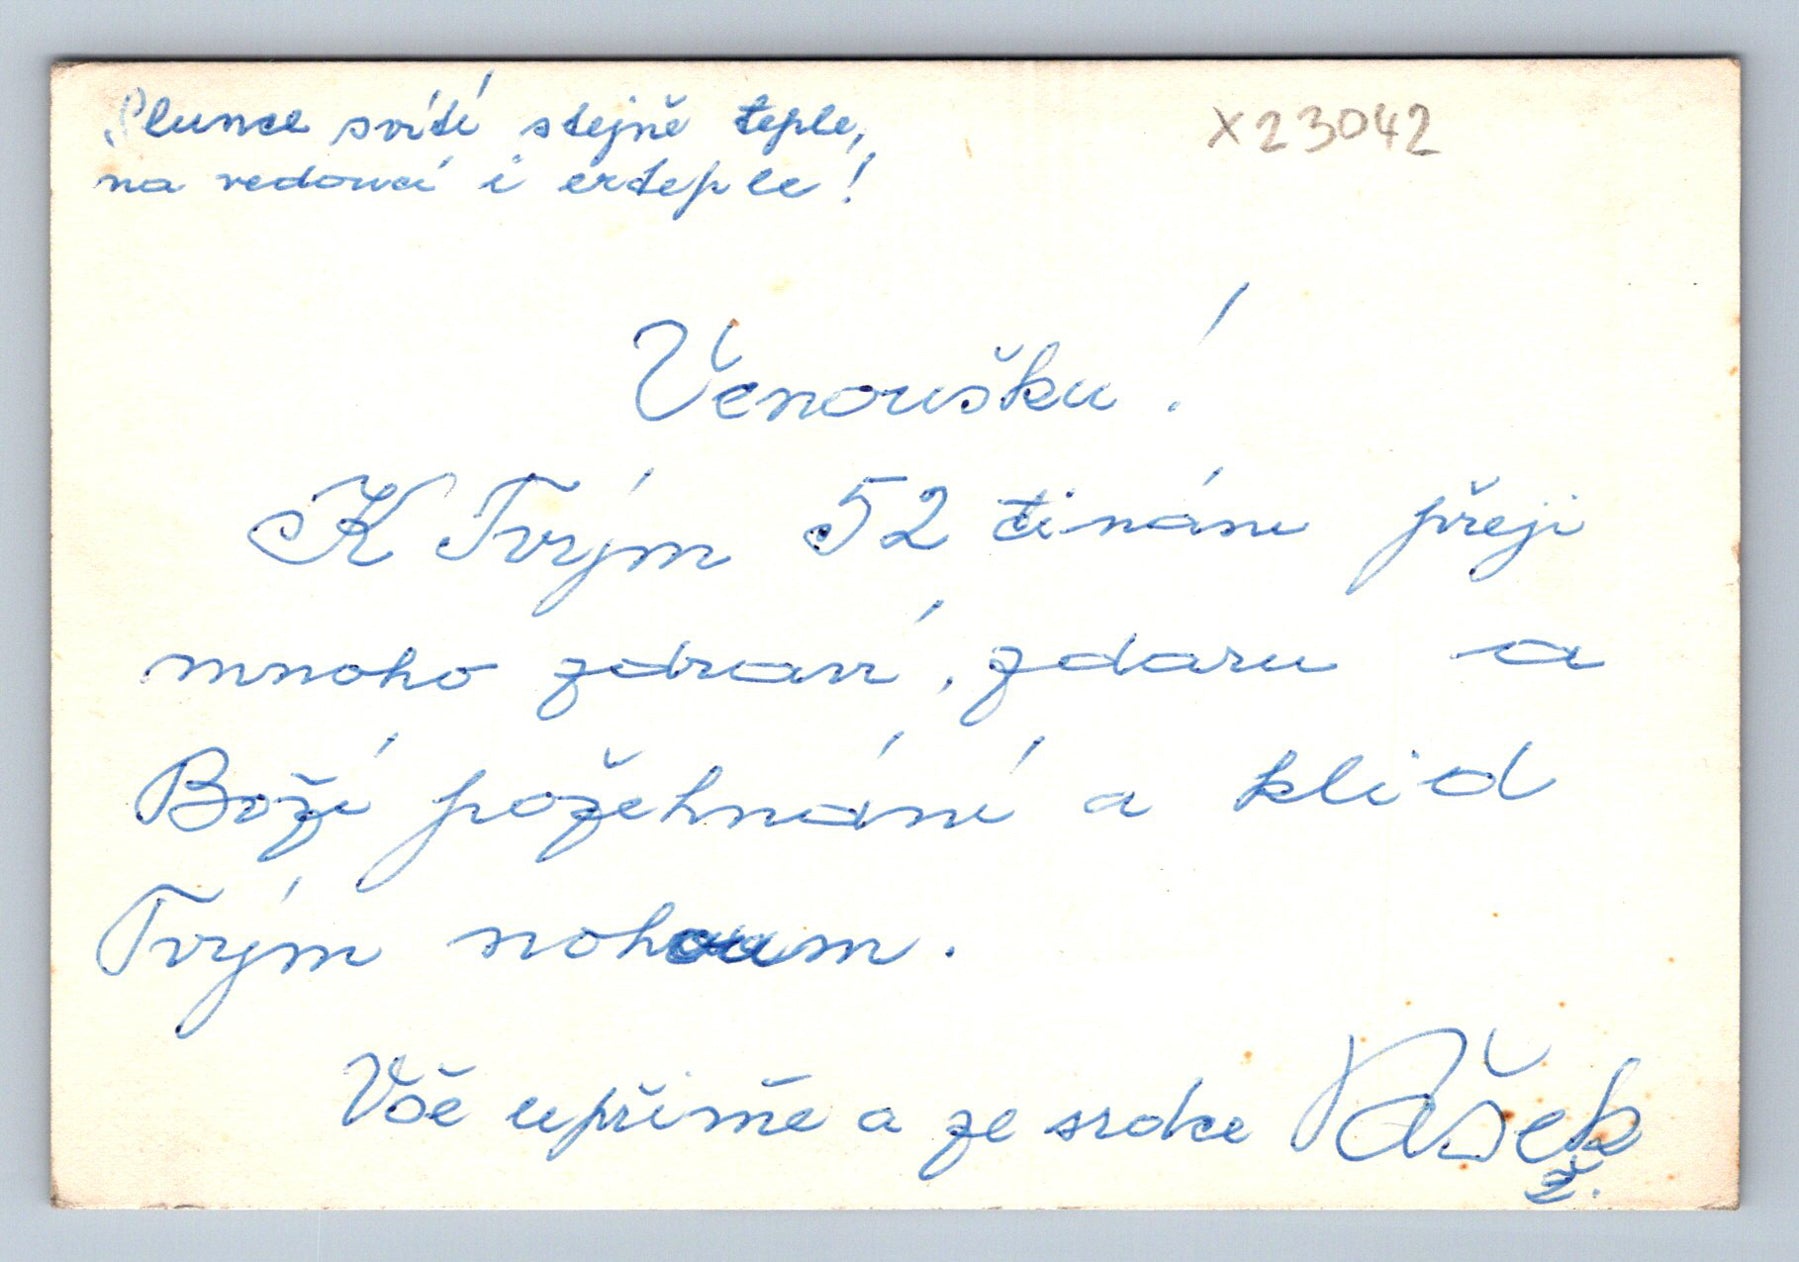 „Slunce svítí stejně teple,
na vedoucí i erteple!
X23042
Věnoušku!
K Tvým 52 tinám přeji
mnoho zdraví, zdaru a
Boží požehnání a klid
Tvým nohoum.
Vše upřímě a ze srdce Vašek
ž.